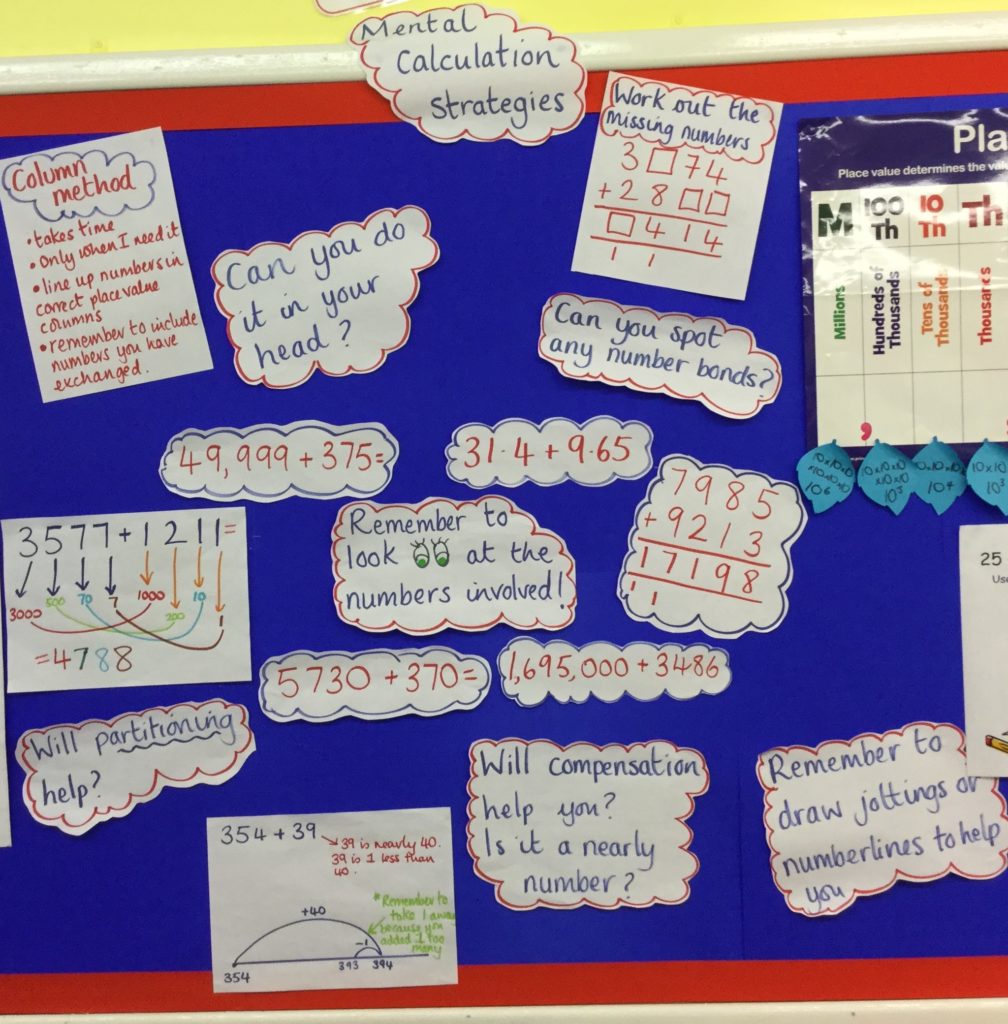 Mental
Calculation
Strategies
Column
method
•takes time
•only when I need it
•line up numbers in
correct place value
columns
•remember to include
numbers you have
exchanged.
Can you do
it in your
head?
Work out the
missing numbers
3□74
+28□□
□414
1 1
Can you spot
any number bonds?
Pla
Place value determines the val
M
100
Th
10
Th
Th
Millions
Hundreds of
Thousands
Tens of
Thousands
Thousands
,
10x10x10
x10x10x10
10⁶
10x10x10
x10x10
10⁵
10x10x10
10⁴
10x10
10³
49,999 + 375=
31·4 + 9·65
7985
+9213
17198
1 1
Remember to
look at the
numbers involved!
3577+1211=
3000 500 70 7 1000 200 10 1
=4788
5730 +370=
1,695,000 + 3486
25
Use
Will partitioning
help?
Will compensation
help you?
Is it a nearly
number?
Remember to
draw jottings or
numberlines to help
you
354 + 39
39 is nearly 40.
39 is 1 less than
40.
+40
*Remember to
take 1 away
because you
added 1 too
many
-1
354
393 394